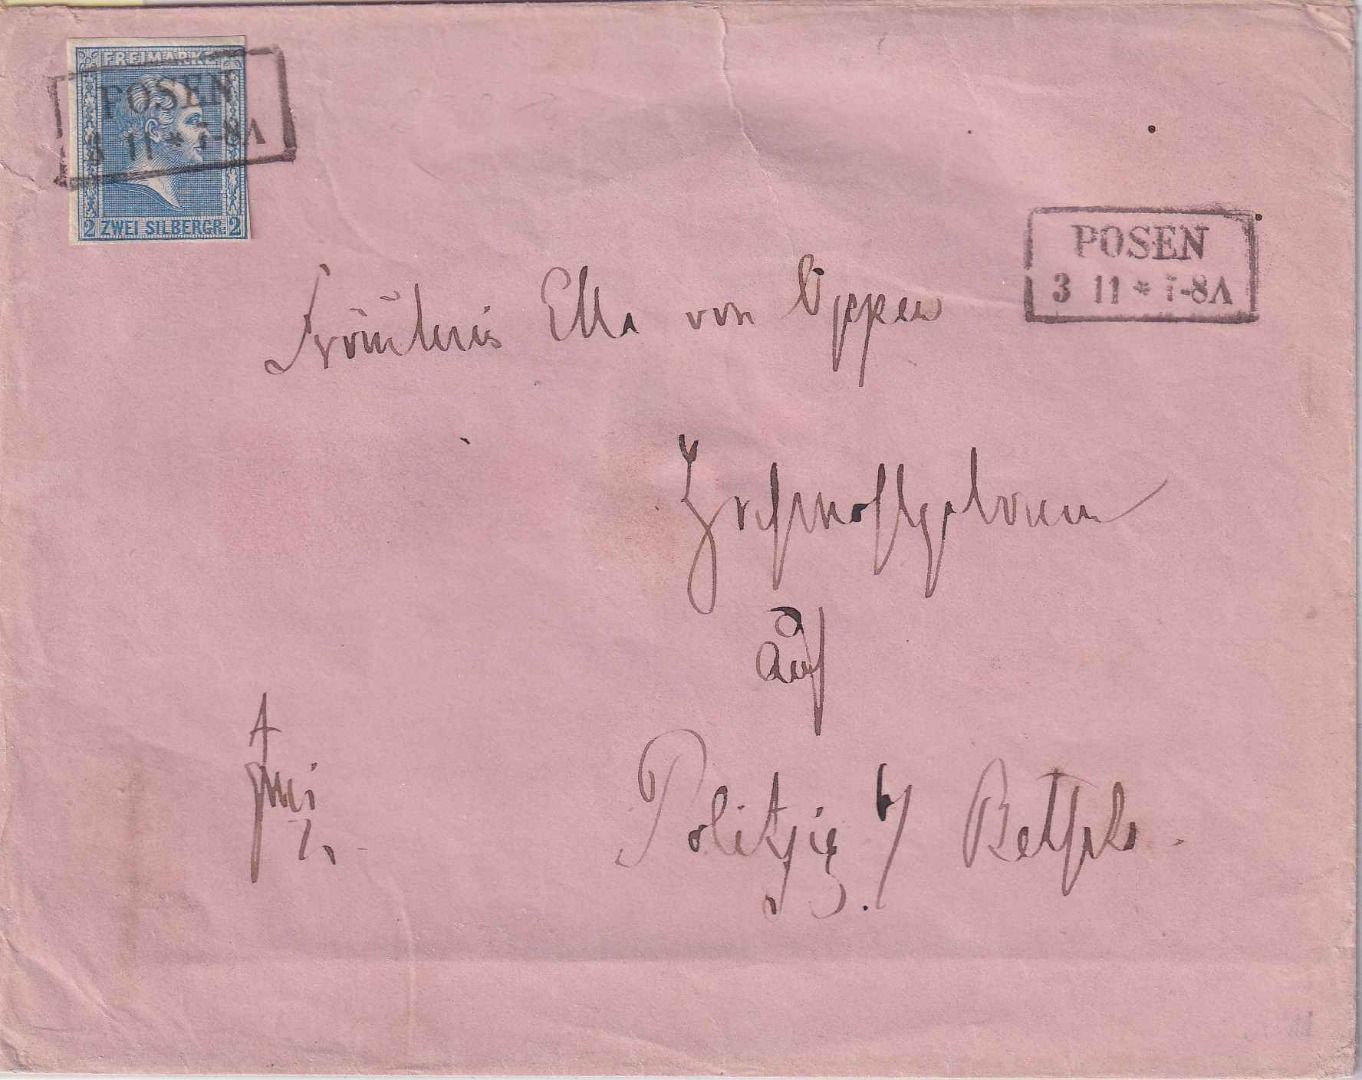 FREIMARKE
POSEN
3 11 * 7-8A
2 ZWEI SILBERGR. 2
POSEN
3 11 * 7-8A
Fräulein Ella von Oppen
Hochwohlgeboren
auf
frei
Politzig b/ Betsche.